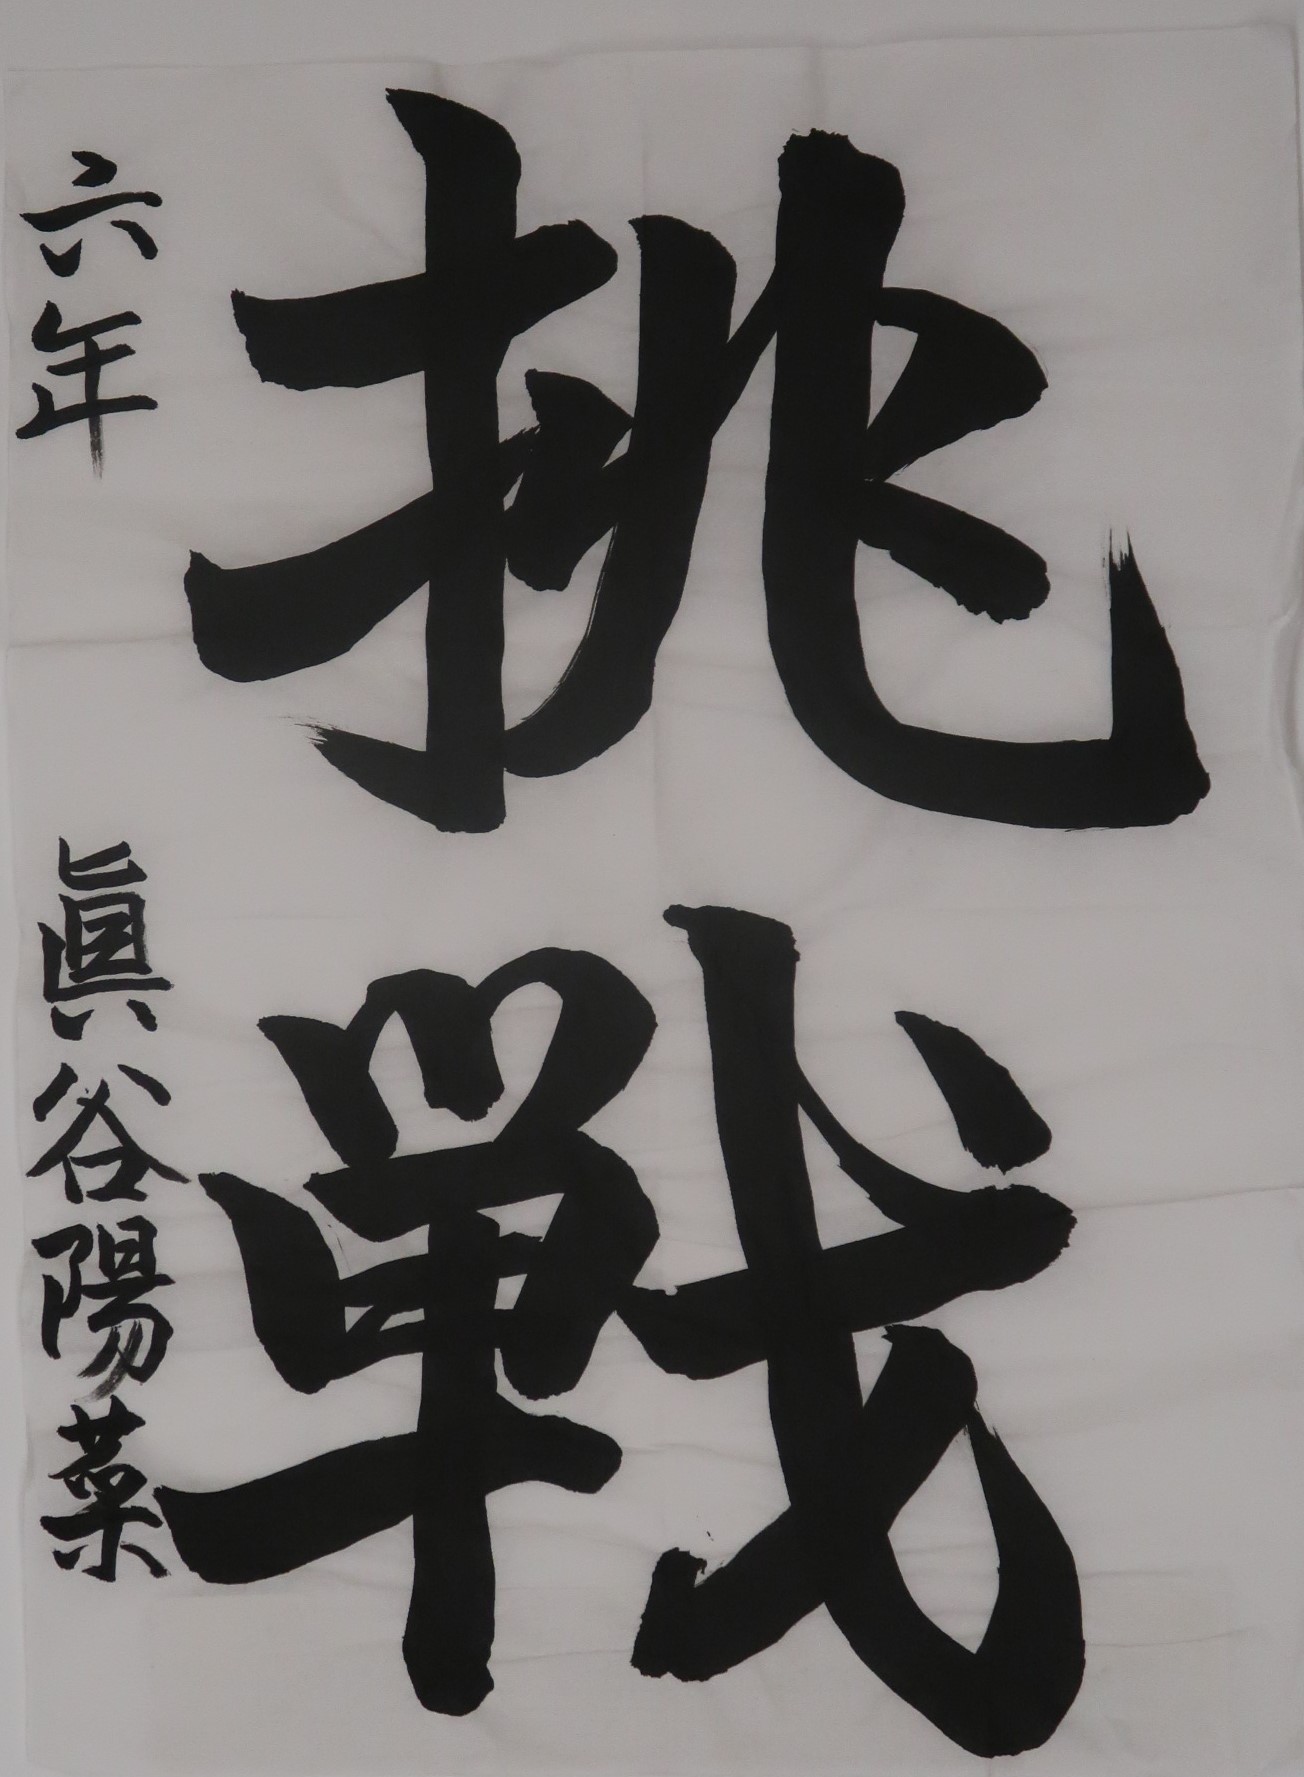 挑戦
六年 眞谷陽菜